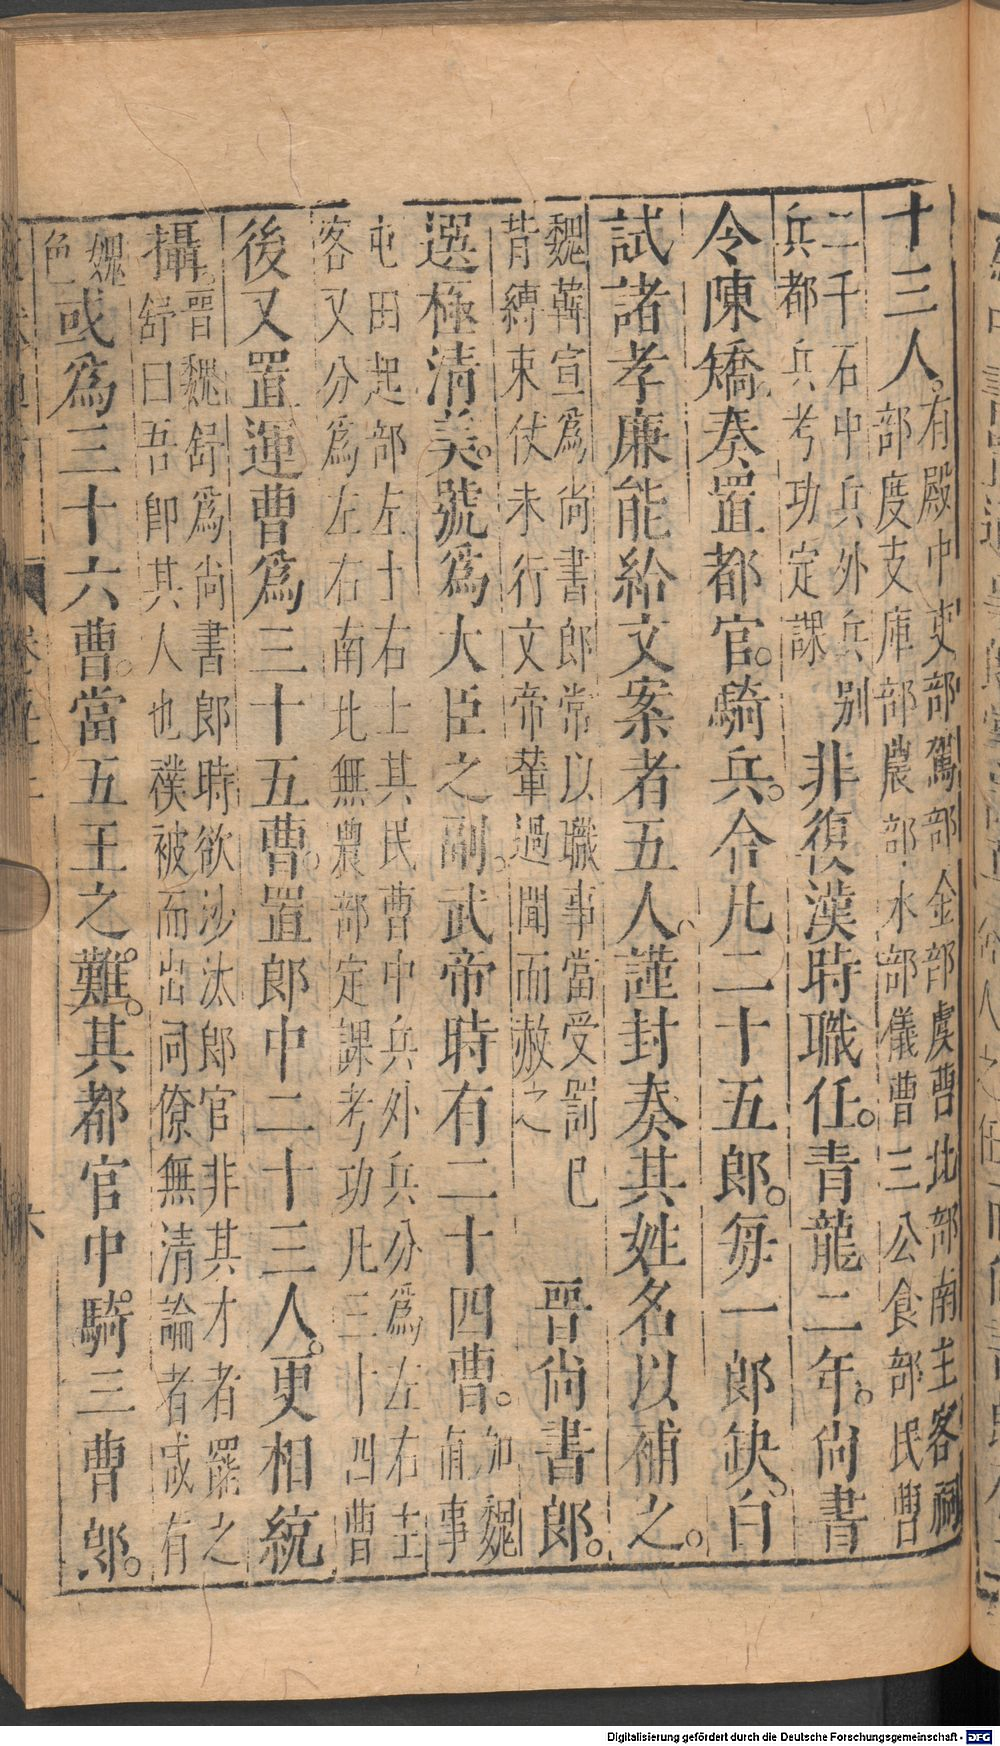 十三人。有殿中吏部駕部金部虞曹北部南主客祠
部度支庫部農部水部儀曹三公食部民曹
二千石中兵外兵別
兵都兵考功定課
非復漢時職任。青龍二年。尚書
令陳矯奏置都官。騎兵。合凢二十五郎。毎一郎缺。白
試諸孝廉能給文案者五人。謹封奏其姓名以補之。
魏韓宣爲尚書郎常以職事當受罰巳
背縛束仗未行文帝輦過聞而赦之
晉尚書郎。
選極清美。號爲大臣之副。武帝時有二十四曹。加魏
直事
屯田起部左士右士其民曹中兵外兵分爲左右主
客又分爲左右南北無農部定課考功凢三十四曹
後又置運曹爲三十五曹。置郎中二十三人。更相統
攝。晉魏舒爲尚書郎時欲沙汰郎官非其才者罷之
舒曰吾即其人也襆被而出同僚無清論者咸有
媿
色
或爲三十六曹。當五王之難。其都官中騎三曹郎。
Digitalisierung gefördert durch die Deutsche Forschungsgemeinschaft - DFG